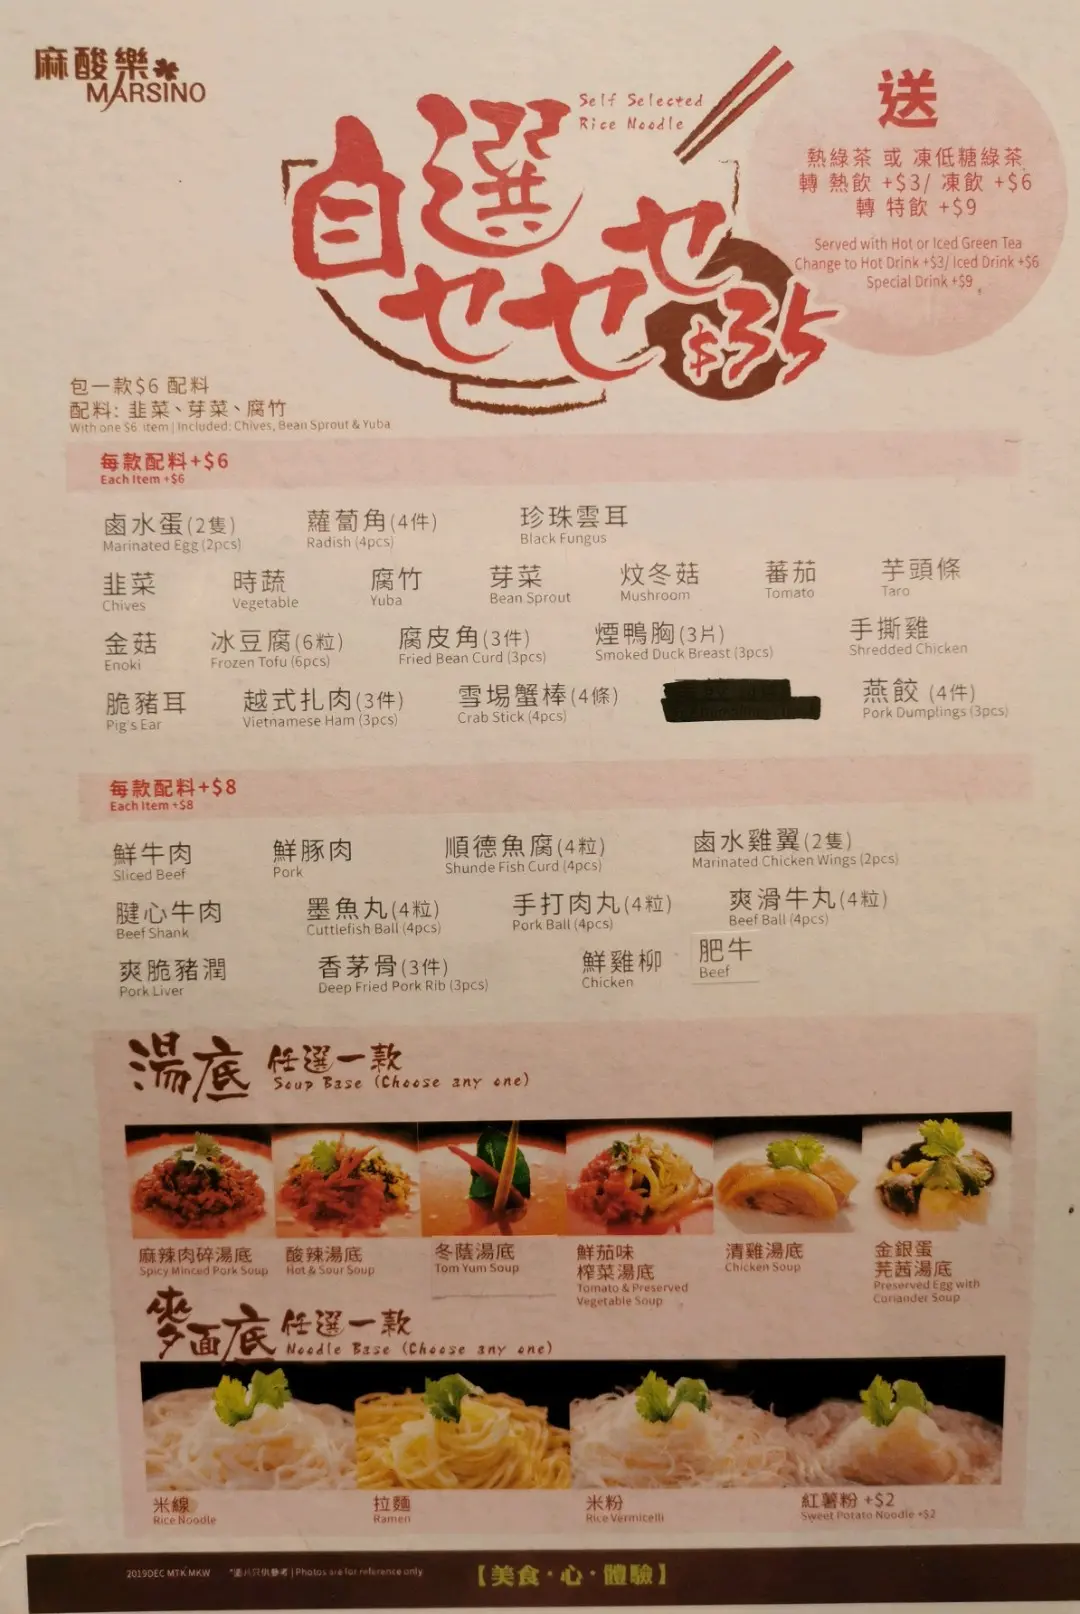 麻酸樂
MARSINO
Self Selected
Rice Noodle
自選
七七七
$35
送
熱綠茶 或 凍低糖綠茶
轉 熱飲 +$3/ 凍飲 +$6
轉 特飲 +$9
Served with Hot or Iced Green Tea
Change to Hot Drink +$3/ Iced Drink +$6
Special Drink +$9
包一款$6 配料
配料: 韭菜、芽菜、腐竹
With one $6 item | Included: Chives, Bean Sprout & Yuba
每款配料+$6
Each Item +$6
鹵水蛋(2隻) 蘿蔔角(4件) 珍珠雲耳
Marinated Egg (2pcs) Radish (4pcs) Black Fungus
韭菜 時蔬 腐竹 芽菜 炆冬菇 蕃茄 芋頭條
Chives Vegetable Yuba Bean Sprout Mushroom Tomato Taro
金菇 冰豆腐(6粒) 腐皮角(3件) 煙鴨胸(3片) 手撕雞
Enoki Frozen Tofu (6pcs) Fried Bean Curd (3pcs) Smoked Duck Breast (3pcs) Shredded Chicken
脆豬耳 越式扎肉(3件) 雪場蟹棒(4條) 燕餃 (4件)
Pig's Ear Vietnamese Ham (3pcs) Crab Stick (4pcs) Pork Dumplings (3pcs)
每款配料+$8
Each Item +$8
鮮牛肉 鮮豚肉 順德魚腐(4粒) 鹵水雞翼(2隻)
Sliced Beef Pork Shunde Fish Curd (4pcs) Marinated Chicken Wings (2pcs)
腱心牛肉 墨魚丸(4粒) 手打肉丸(4粒) 爽滑牛丸(4粒)
Beef Shank Cuttlefish Ball (4pcs) Pork Ball (4pcs) Beef Ball (4pcs)
爽脆豬潤 香茅骨(3件) 鮮雞柳 肥牛
Pork Liver Deep Fried Pork Rib (3pcs) Chicken Beef
湯底 任選一款
Soup Base (Choose any one)
麻辣肉碎湯底 酸辣湯底 冬蔭湯底 鮮茄味 清雞湯底 金銀蛋
Spicy Minced Pork Soup Hot & Sour Soup Tom Yum Soup 榨菜湯底 Chicken Soup 芫茜湯底
Tomato & Preserved Preserved Egg with
Vegetable Soup Coriander Soup
麥面底 任選一款
Noodle Base (Choose any one)
米線 拉麵 米粉 紅薯粉 +$2
Rice Noodle Ramen Rice Vermicelli Sweet Potato Noodle +$2
2019DEC MTK MKW *圖片只供參考 | Photos are for reference only 【美食·心·體驗】